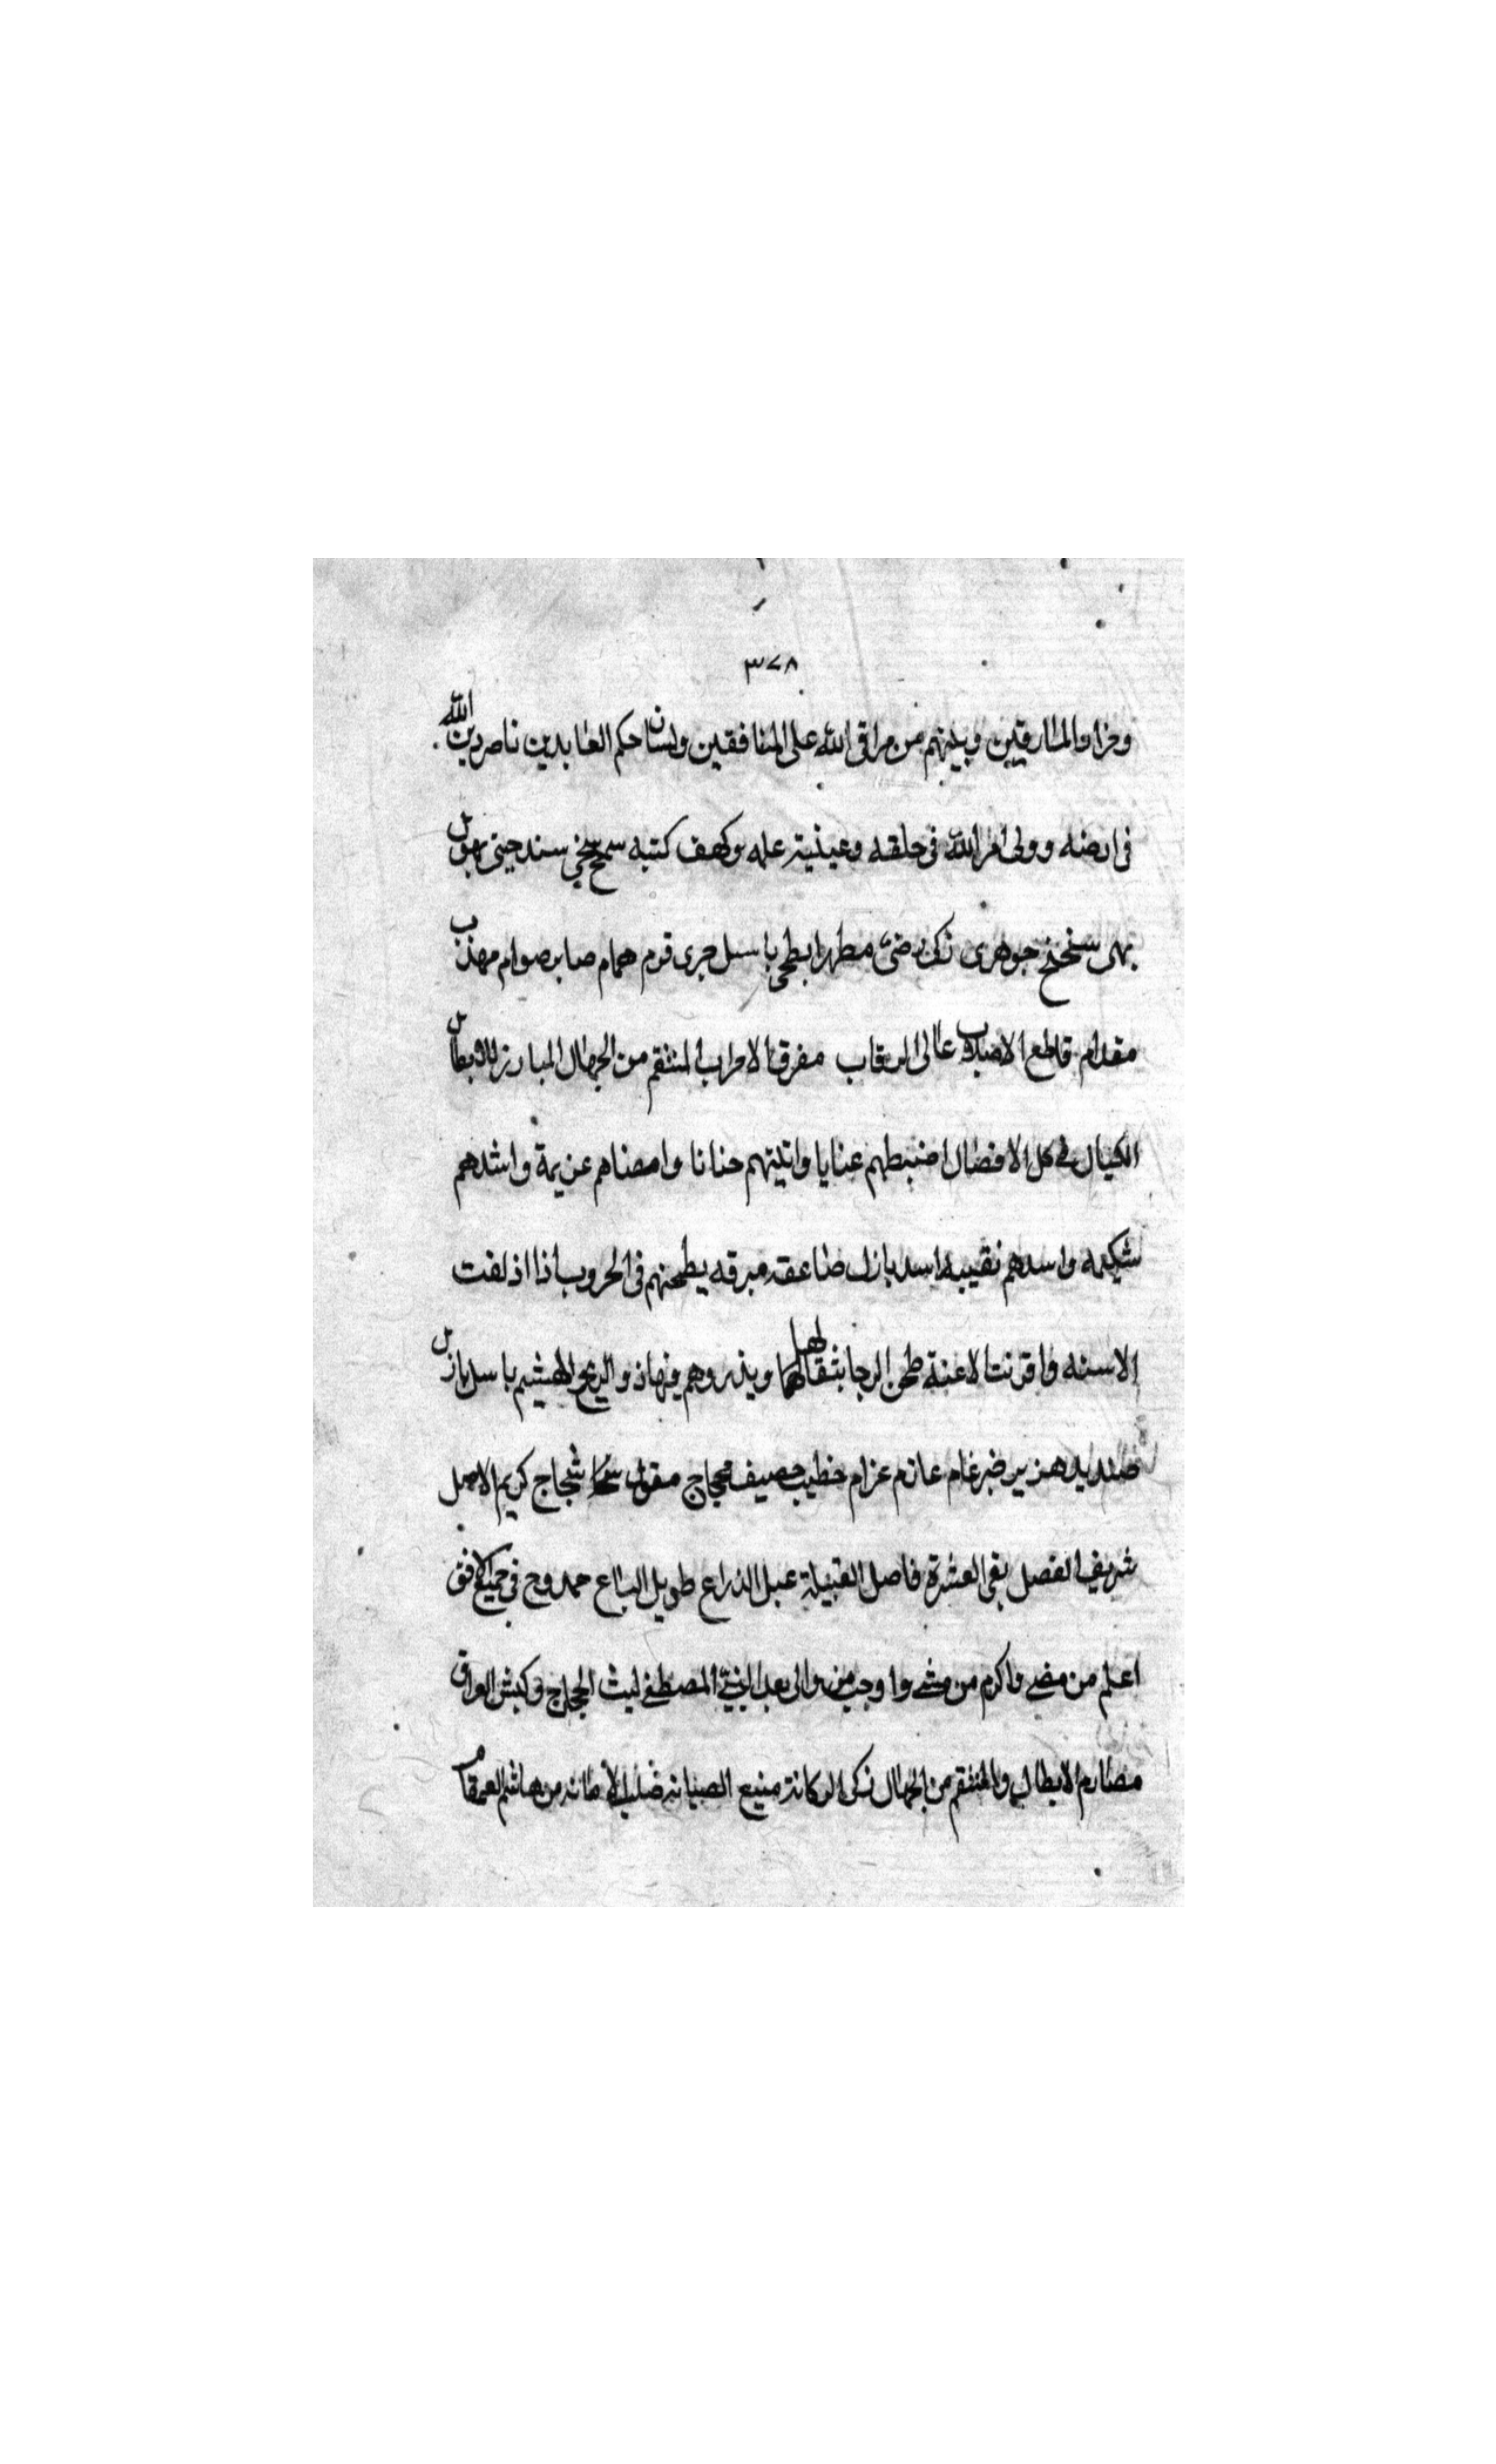 ٣٧٨
وفراوالمارقين وبينهم من مراق الله على المنافقين ولسان حكم العابدين ناصر دين الله
فى ارضه وولى امر الله فى خلقه وعيذية علمه وكهف كتبه سمح سخي سند حيى بهلول
بهى سنحنح جوهرى زكى رضى مطهر ابطحى باسل جرى قرم همام صابر صوام مهذب
مقدام قاطع الاصلاب عالى الرقاب مفرق الاحزاب المنتقم من الجهال المبارز للابطال
الكيال فى كل الافضال اضبطهم عنايا واثبتهم حنانا وامضاهم عزيمة واشدهم
شكيمه واسدهم نقيبه اسد بازل صاعقه مبرقه يطحنهم فى الحروب اذا اذلفت
الاسنه واقرنت الاعنة طحن الرحا بثقالها ويذروهم فيهاذ والريح الهشيم باسل بازل
صنديد هزبر ضرغام عازم عزام خطيب حصيف محجاج مقول شجاج كريم الاصل
شريف الفصل نقى العشرة فاصل القبيلة عبل الذراع طويل الباع ممدوح فى جميع الافق
اعلم من مضى واكرم من مشى واوجب من والى بعد النبى المصطفى ليث الحجاج وكبش العراق
مصارم الابطال والمنتقم من الجهال زكى الركانة منيع الصيانه صليب الامانه من هاشم القمقام